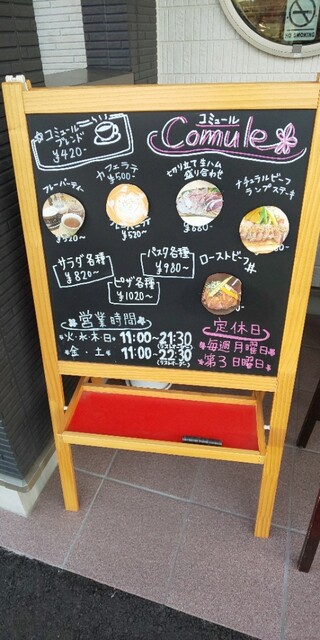 NO SMOKING
コミュール
ブレンド
¥420-
コミュール
Comule
カフェラテ
¥500-
切り立て生ハム
盛り合わせ
¥880-
ナチュラルビーフ
ランプステーキ
フレーバーティー
¥520~
¥520~
サラダ各種
¥820~
パスタ各種
¥980~
ローストビーフ丼
ピザ各種
¥1020~
営業時間
火・水・木・日 11:00~21:30
(ラストオーダー)
金・土 11:00~22:30
(ラストオーダー)
定休日
毎週月曜日
第3日曜日